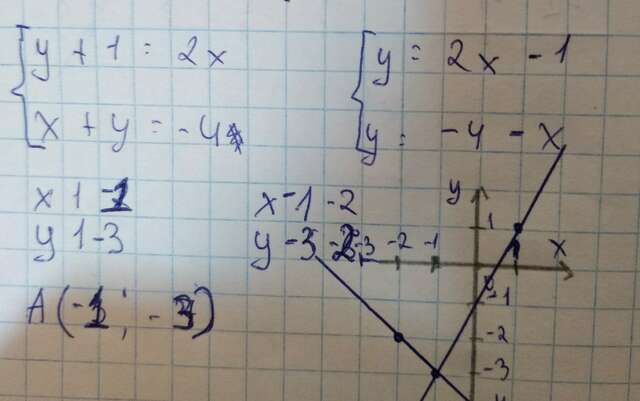 y + 1 = 2x
x + y = -4
y = 2x - 1
y = -4 - x
x 1 -1
y 1 -3
x -1 -2
y -3 -2
A(-1; -3)
y
1
-3 -2 -1 1 x
-1
-2
-3